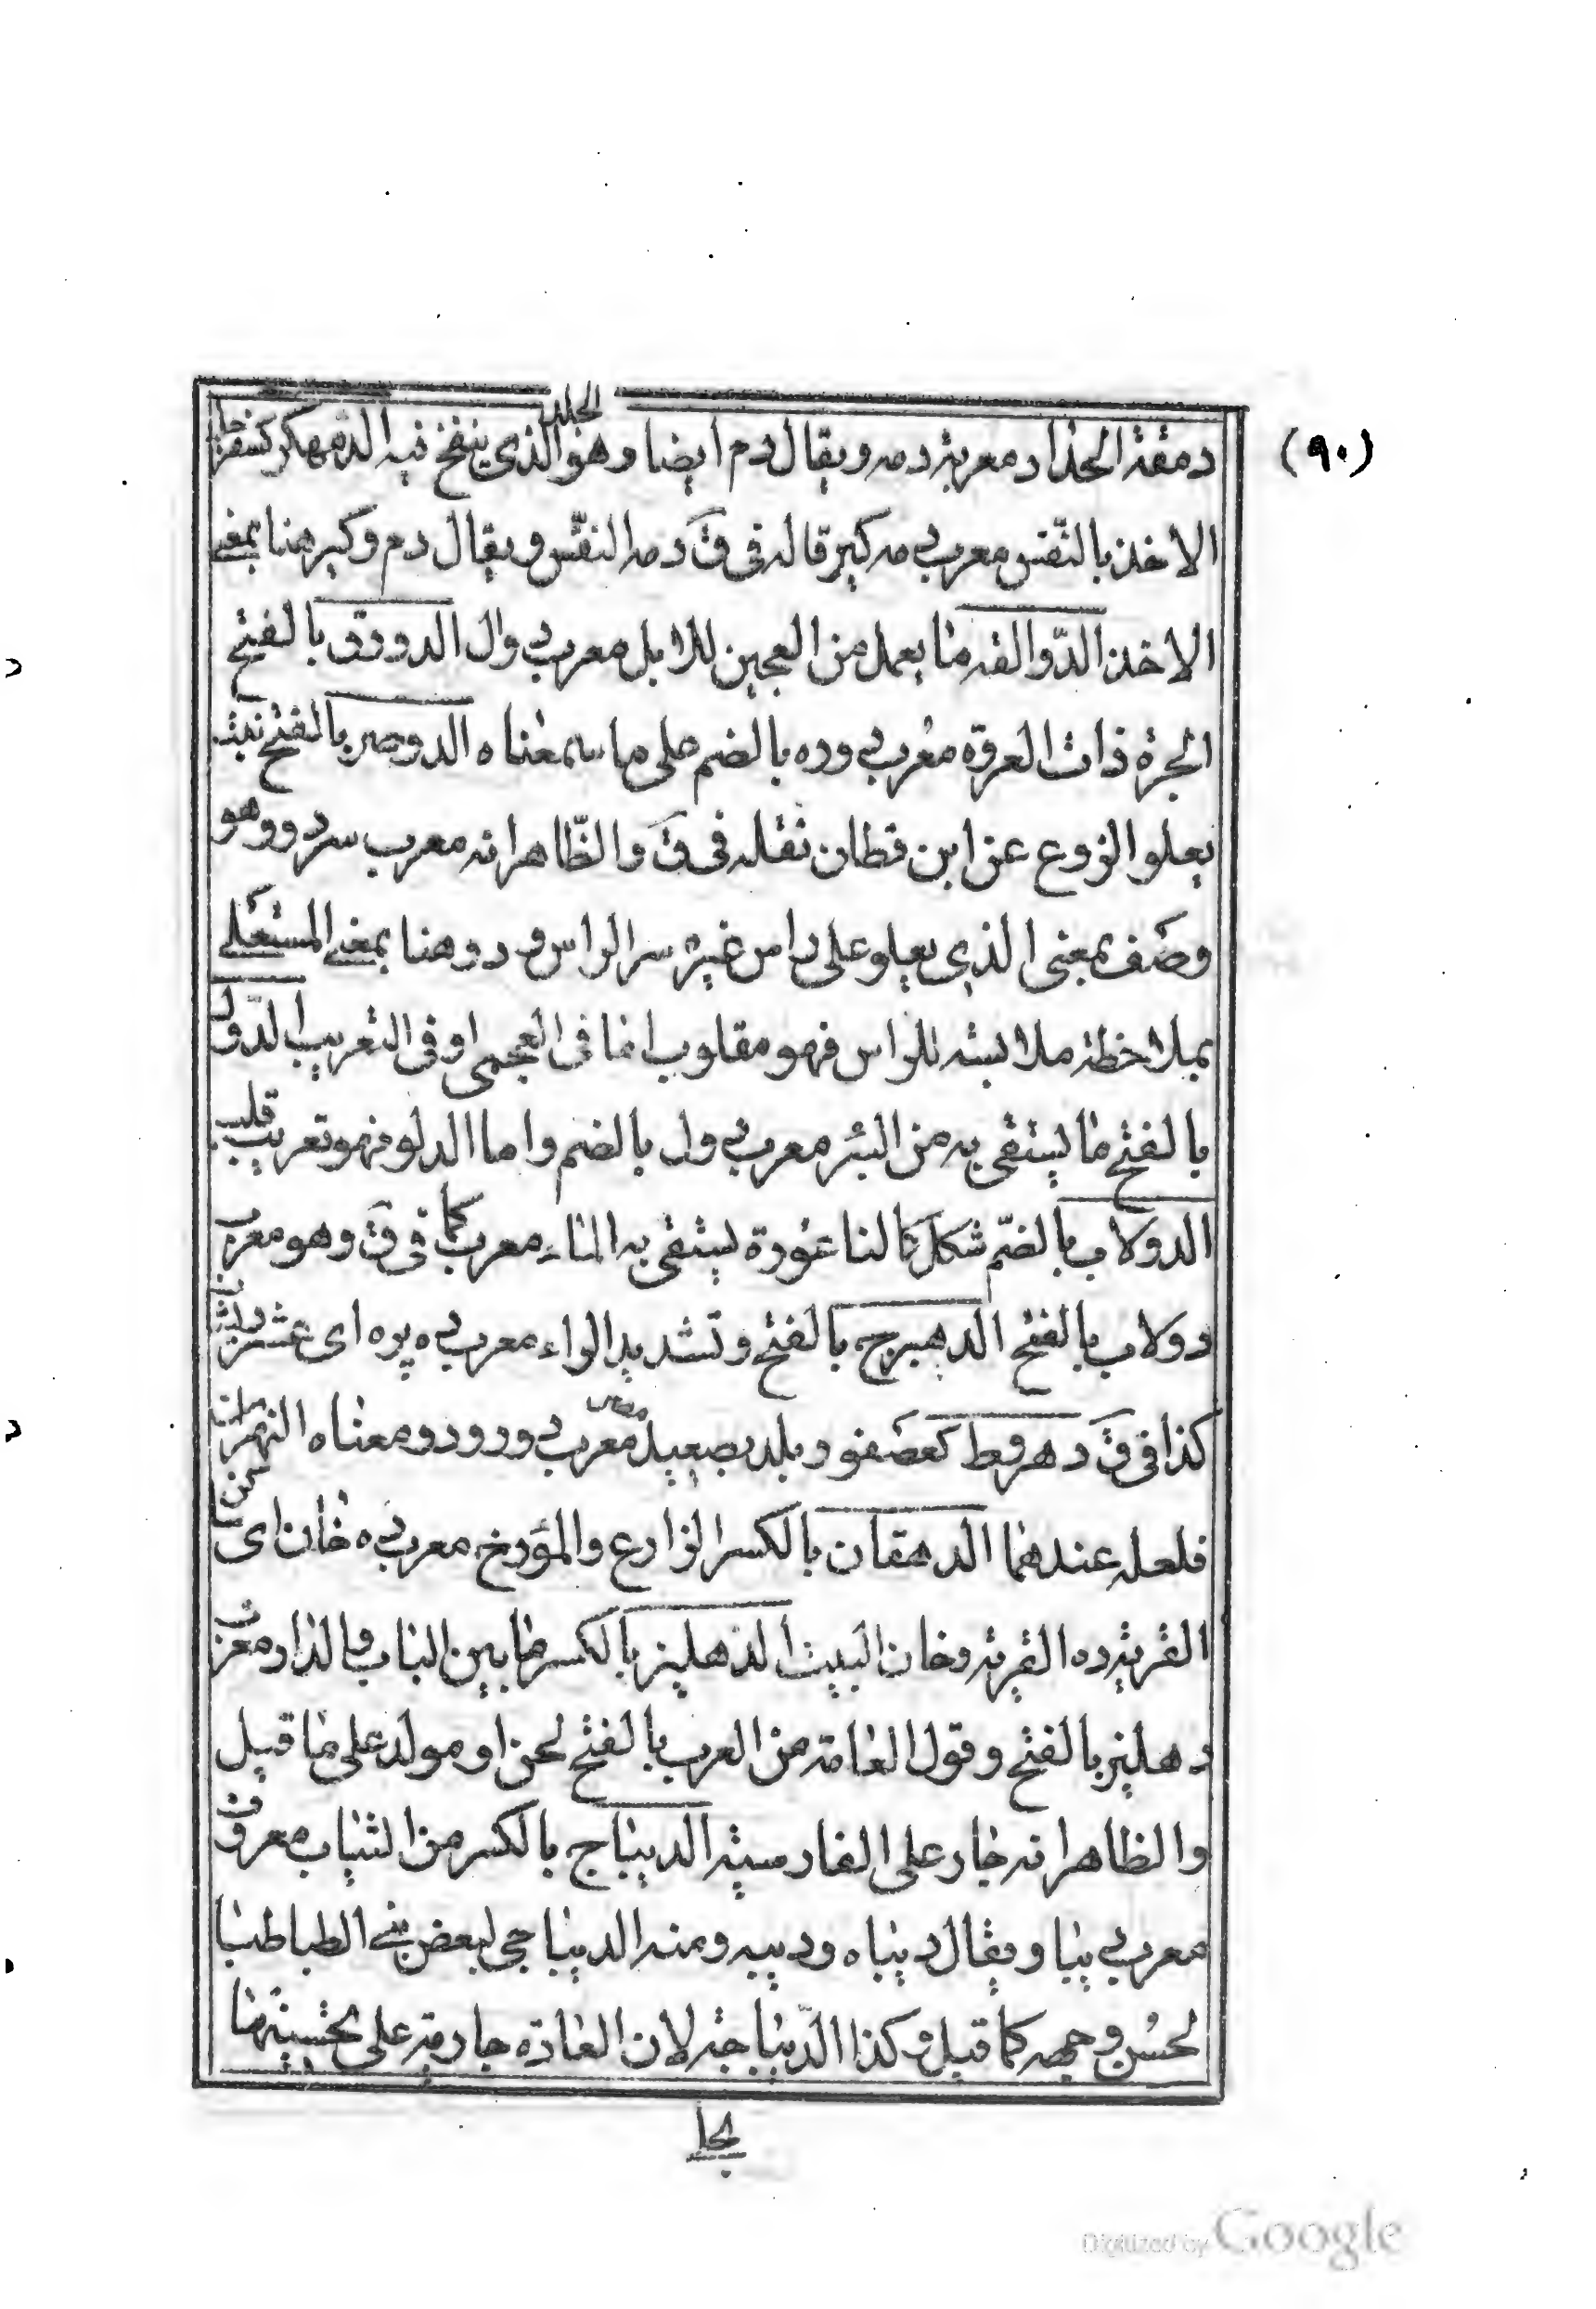 (٩٠)
دمقة الحذاد معربة دمه ويقال دم ايضا وهو الجلد الذي ينفخ فيه الدمهكر كسفرجل
الاخذ بالنّفس معرب دمه كير قاله في ق دمه النفّس ويقال دم وكير هنا بمعنى
الاخذ الدّوالقه ما يعمل من العجين للابل معرب دوال الدورق بالفتح
الجرة ذات العروة معرب دوره بالضم على ما معناه الدوسر بالفتح نبت
يعلو الزوع عن ابن قطان نقله في ق والظّاهر انه معرب سردو وهو
وصف بمعنى الذي يعلو على راس غيره سر الراس و دو هنا بمعنى المستعلي
بملاحظة ملابسته للراس فهو مقلوب اما في العجمي او في التعريب الدّول
بالفتح ما يستقى به من البئر معرب دول بالضم واما الدلو فهو تعريب قلب
الدولاب بالضمّ شكل كالناعورة يستقى به الماء معرب كما في ق وهو معرب
دولاب بالفتح الدهبرج بالفتح وتشديد الراء معرب ده پره اى عشر ريشات
كذا في ق دهروط كعصفور بلد بصعيد مصر معرب دورود ومعناه النهران
فلعله عندهما الدهقان بالكسر الزارع والمؤرخ معرب ده خان اى
القرية ده القرية وخان البيت الدهليز بالكسر ما بين الباب والدار معرب
دهليز بالفتح وقول العامة من العرب بالفتح لحن او مولد على ما قيل
والظاهر انه جار على الفارسية الديباج بالكسر من الثياب معروف
معرب ديبا ويقال ديباه وديبه ومنه الديباجى لبعض بني الطباطبا
لحسن وجهه كما قيل وكذا الدّيباجة لان العادة جارية على تحسينها
Digitized by Google